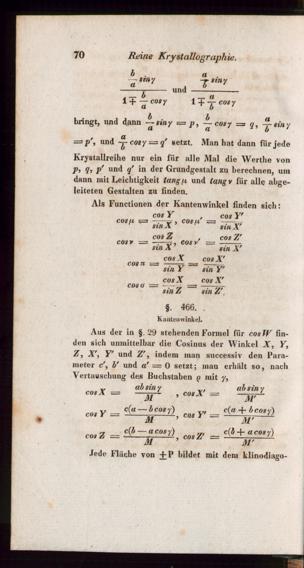 70 Reine Krystallographie.
b/a sinγ / 1∓ b/a cosγ und a/b sinγ / 1∓ a/b cosγ
bringt, und dann b/a sinγ = p, b/a cosγ = q, a/b sinγ
= p', und a/b cosγ = q' setzt. Man hat dann für jede
Krystallreihe nur ein für alle Mal die Werthe von
p, q, p' und q' in der Grundgestalt zu berechnen, um
dann mit Leichtigkeit tang μ und tang ν für alle abge-
leiteten Gestalten zu finden.
Als Functionen der Kantenwinkel finden sich:
cos μ = cos Y / sin X, cos μ' = cos Y' / sin X'
cos ν = cos Z / sin X, cos ν' = cos Z' / sin X'
cos π = cos X / sin Y = cos X' / sin Y'
cos σ = cos X / sin Z = cos X' / sin Z'
§. 466.
Kantenwinkel.
Aus der in §. 29 stehenden Formel für cos W fin-
den sich unmittelbar die Cosinus der Winkel X, Y,
Z, X', Y' und Z', indem man successiv den Para-
meter c', b' und a' = 0 setzt; man erhält so, nach
Vertauschung des Buchstaben ϱ mit γ,
cos X = ab sinγ / M, cos X' = ab sinγ / M'
cos Y = c(a − b cosγ) / M, cos Y' = c(a + b cosγ) / M'
cos Z = c(b − a cosγ) / M, cos Z' = c(b + a cosγ) / M'
Jede Fläche von ±P bildet mit dem klinodiago-